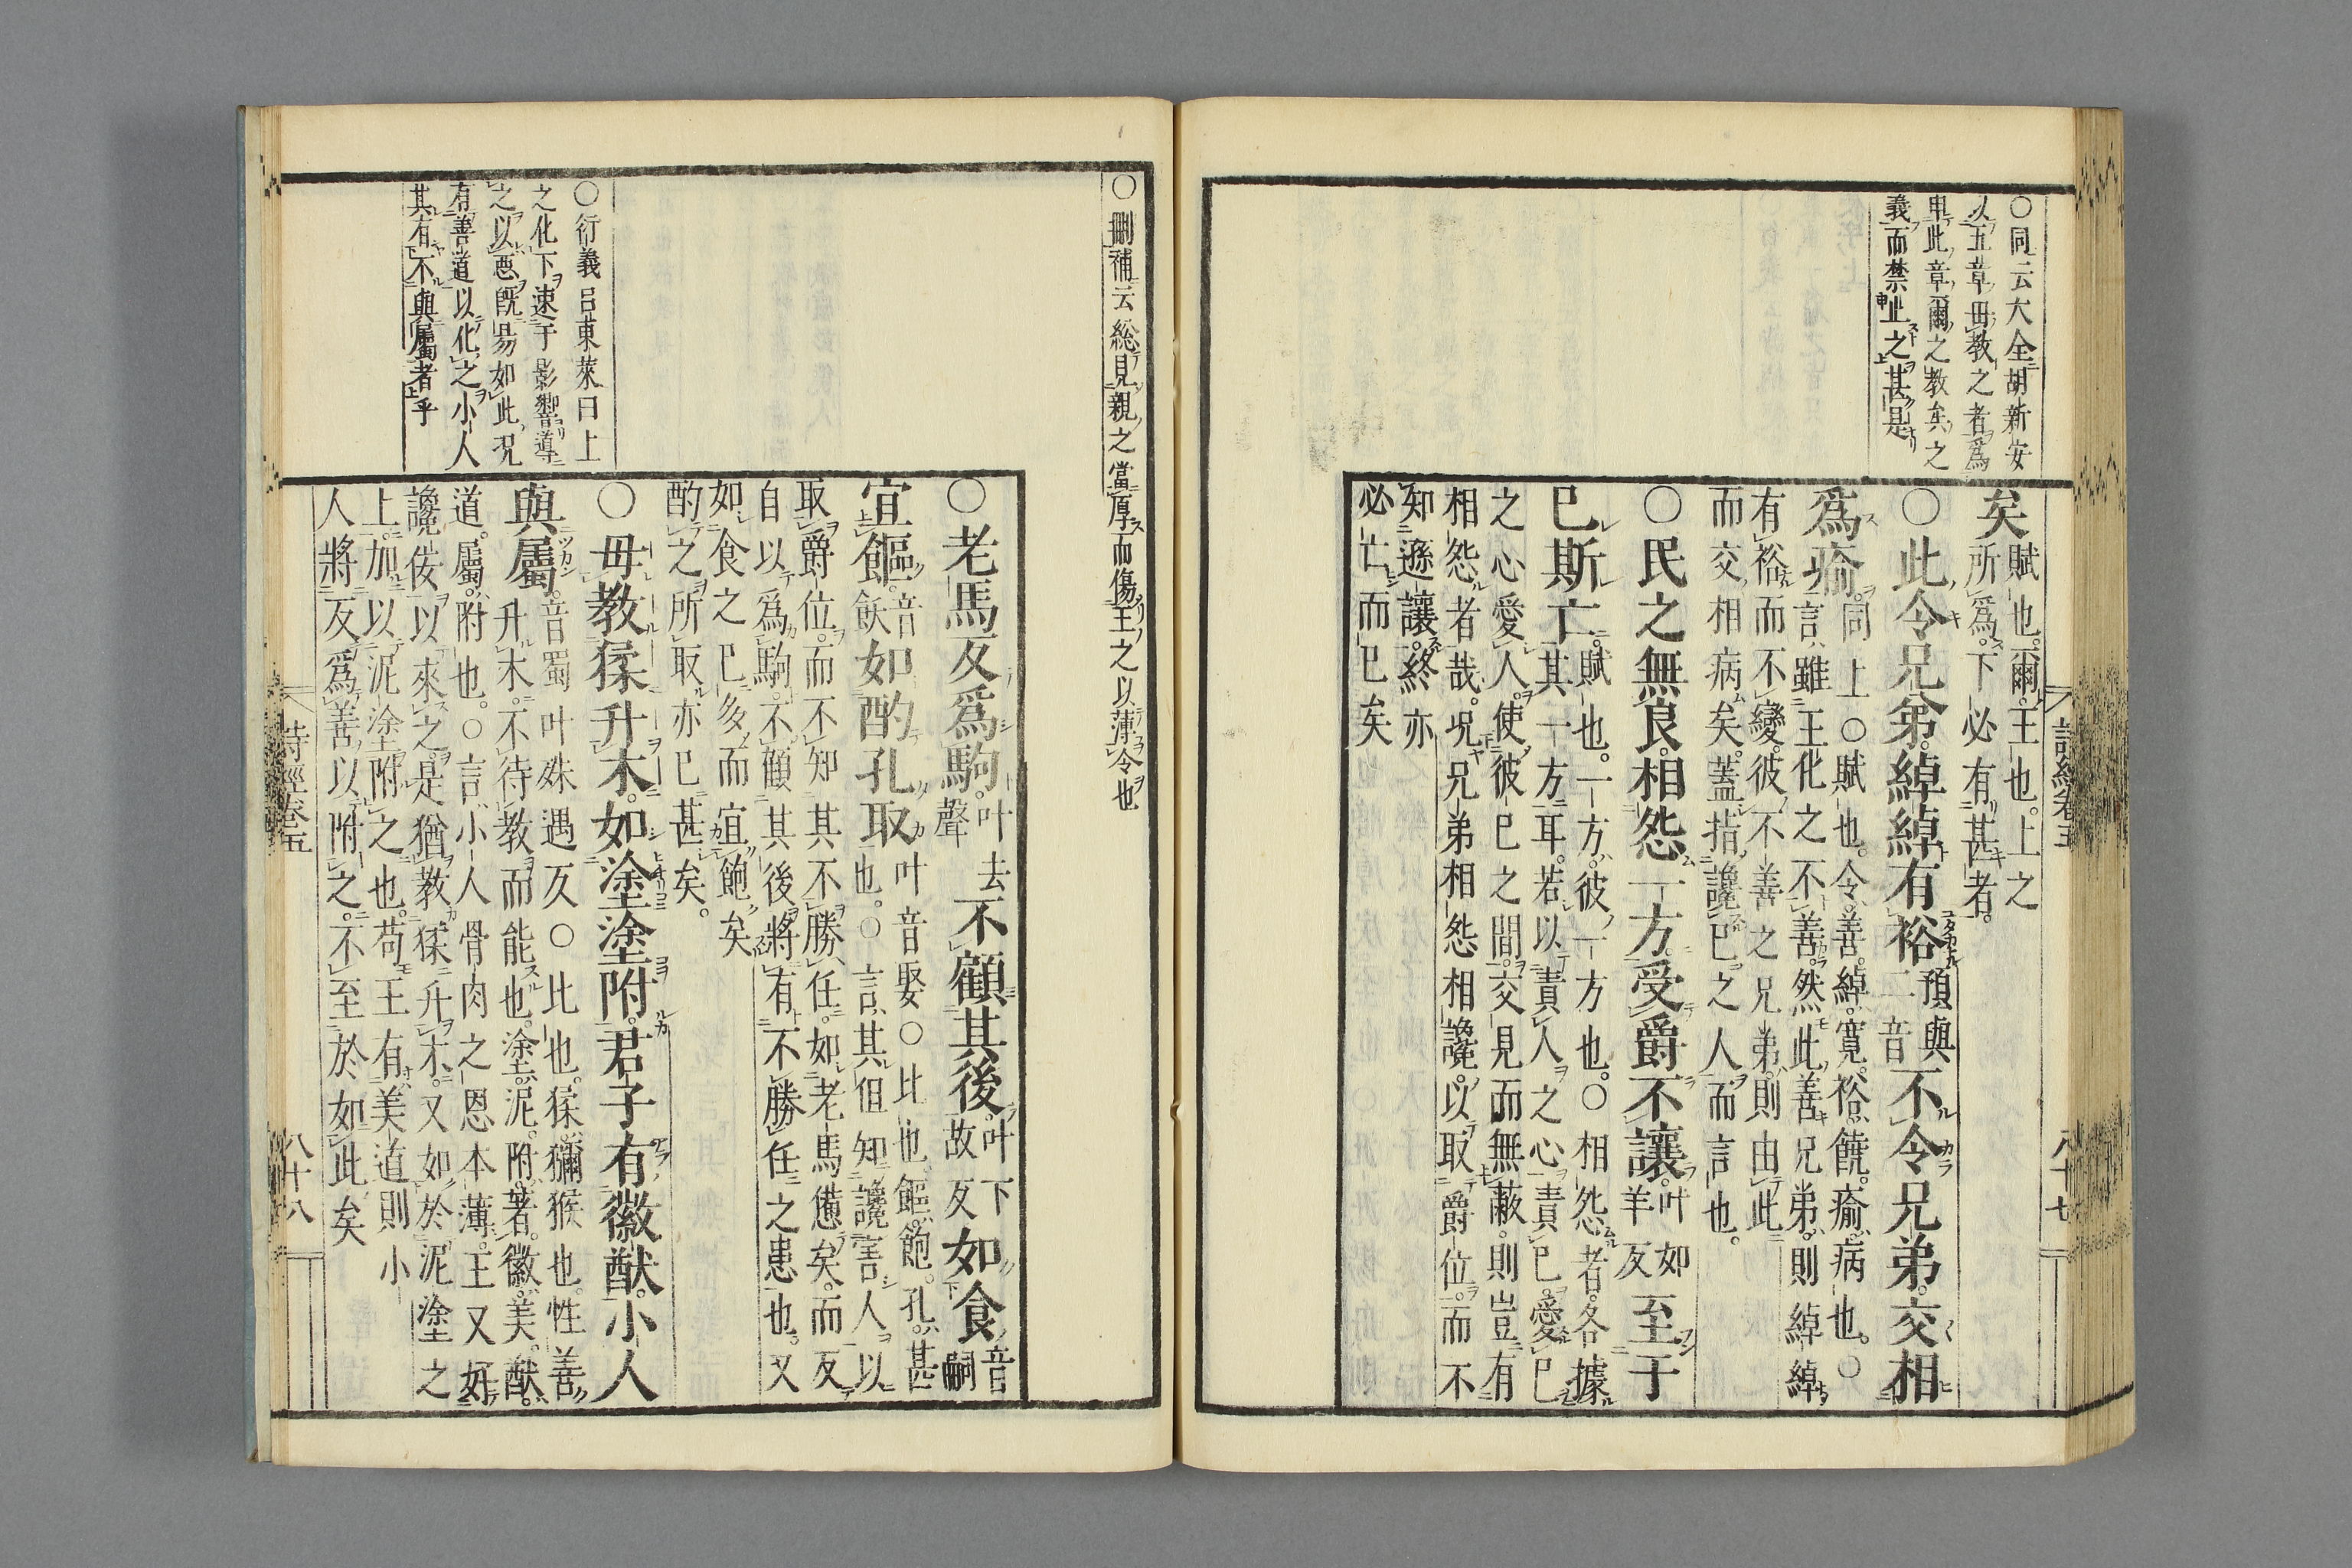 ○同云大全胡新安
以五章毋教之者爲
申此章爾之教矣之
義而禁止之甚是
矣
賦也爾王也上之
所爲下必有甚者
○此令兄弟綽綽有裕預與二音不令兄弟交相
爲瘉同上○賦也令善綽寬裕饒瘉病也○
言雖王化之不善然此善兄弟則綽綽
有裕而不變彼不善之兄弟則由此
而交相病矣蓋指讒己之人而言也
○民之無良相怨一方受爵不讓叶如羊反至于
巳斯亡賦也一方彼一方也○相怨者各據
其一方耳若以責人之心責己愛己
之心愛人使彼己之間交見而無蔽則豈有
相怨者哉況兄弟相怨相讒以取爵位而不
知遜讓終亦
必亡而已矣
詩經卷五
八十七
○刪補云総見親之當厚而傷王之以薄令也
○老馬反爲駒叶去聲不顧其後叶下故反如食音嗣
宜饇音飫如酌孔取叶音娶○比也饇飽孔甚
也○言其但知讒害人以
取爵位而不知其不勝任如老馬憊矣而反
自以爲駒不顧其後將有不勝任之患也又
如食之已多而宜飽矣
酌之所取亦已甚矣
○衍義呂東萊曰上
之化下速于影響導
之以惡既昜如此況
有善道以化之小人
其有不與屬者乎
○毋教猱升木如塗塗附君子有徽猷小人
與屬音蜀叶殊遇反○比也猱獼猴也性善
升木不待教而能也塗泥附著徽美猷
道屬附也○言小人骨肉之恩本薄王又好
讒佞以來之是猶教猱升木又如於泥塗之
上加以泥塗附之也苟王有美道則小
人將反爲善以附之不至於如此矣
詩經卷五
八十八